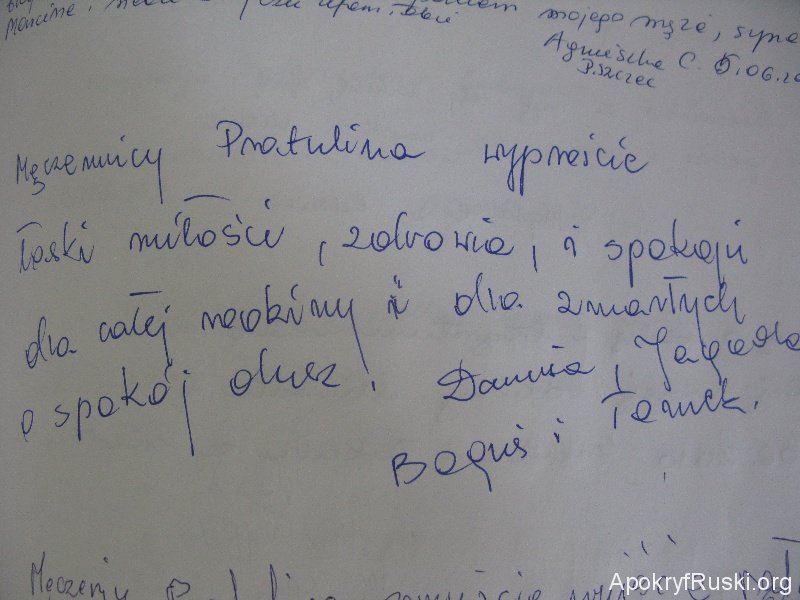 mojego męża, syna
Agnieszka C. 5.06.20
P.Szczec
Męczennicy Pratulina wyproście
łaski miłości, zdrowia, i spokoju
dla całej rodziny i dla zmarłych
o spokój dusz. Danusia, Jagoda
Boguś i Tomek.
ApokryfRuski.org